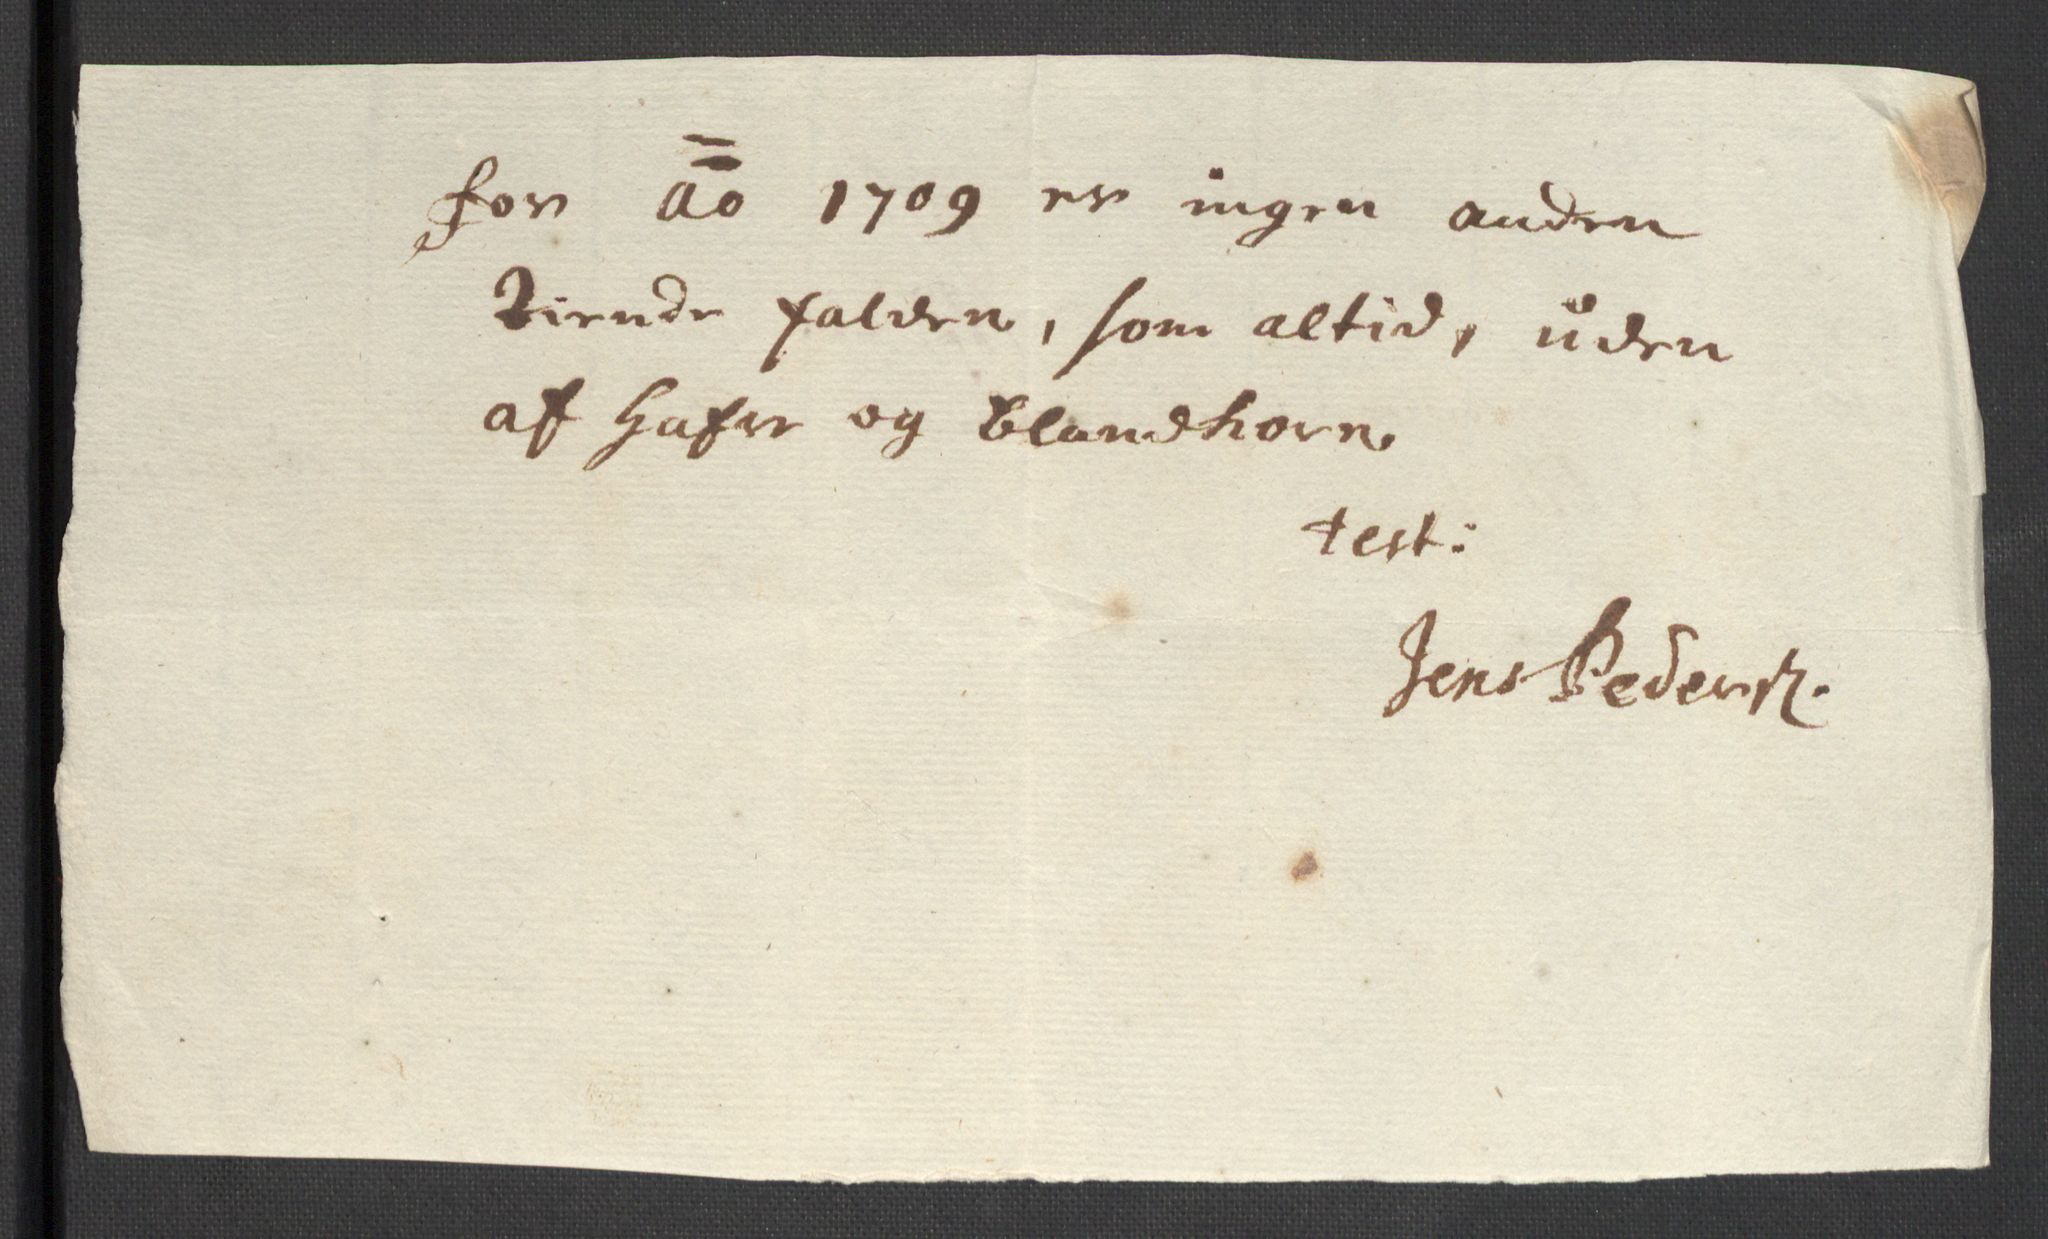 for Ao 1709 er ingen anden
Tiende falden, som altid, uden
af Hafer og blandkorn.
test:
Jens Pedersk.